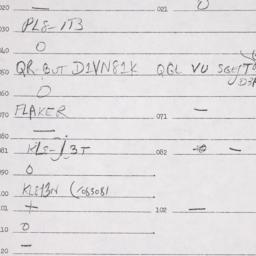 020 — 021 0
PL8-1T3
030
0
040
QR-BUT D1VN81K QQL VU
050
060 0
FLAKER 071 —
070
080 —
081 KL8-J3T 082 —
090 0
100 KLE13N (083081
101 + 102 —
110 0
120 —